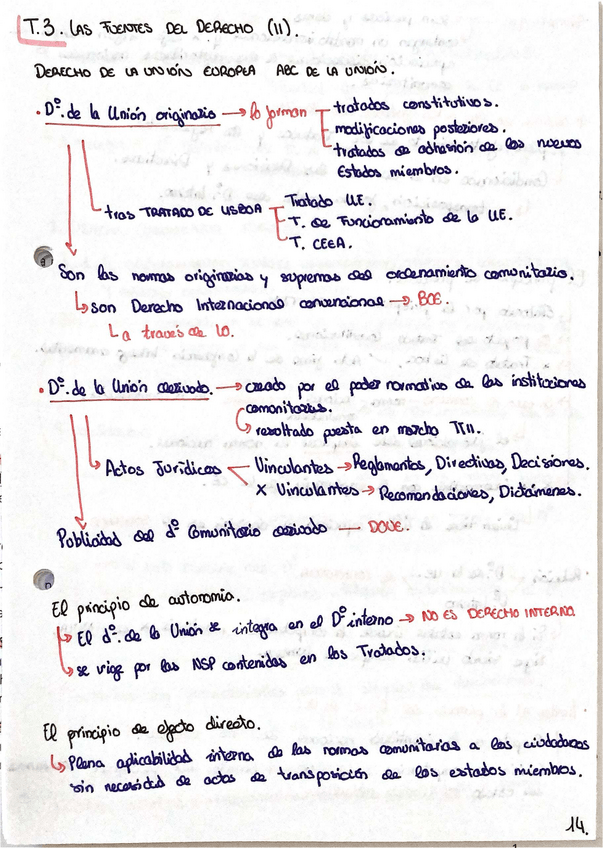 T.3. LAS FUENTES DEL DERECHO (II).
DERECHO DE LA UNIÓN EUROPEA ABC DE LA UNIÓN.
• Dº. de la Unión originario → lo forman tratados constitutivos.
modificaciones posteriores.
tratados de adhesión de los nuevos
Estados miembros.
tras TRATADO DE LISBOA Tratado UE.
T. de Funcionamiento de la UE.
T. CEEA.
Son las normas originarias y supremas del ordenamiento comunitario.
↳ son Derecho Internacional convencional → BOE.
↳ a través de LO.
• Dº. de la Unión derivado. → creado por el poder normativo de las instituciones
comunitarias.
↳ resultado puesta en marcha TTII.
↳ Actos Jurídicos Vinculantes → Reglamentos, Directivas, Decisiones.
X Vinculantes → Recomendaciones, Dictámenes.
Publicidad del dº comunitario derivado — DOUE.
El principio de autonomía.
↳ El dº. de la Unión se integra en el Dº interno → NO ES DERECHO INTERNO
↳ se rige por las NSP contenidas en los Tratados.
El principio de efecto directo.
↳ Plena aplicabilidad interna de las normas comunitarias a los ciudadanos
sin necesidad de actos de transposición de los estados miembros.
14.